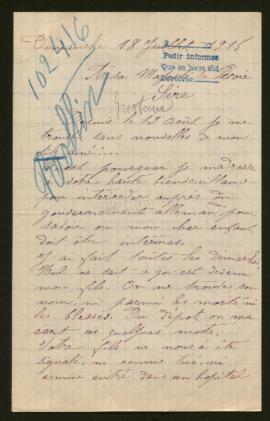 Dimanche 18 Juillet 1915
Pedir informes
A sa Majesté le
Sire
102416
Depuis le 19 août je me
trouve sans nouvelles de mon
C'est pourquoi je m'adresse
à votre haute bienveillance
pour intercéder auprès du
gouvernement allemand, pour
savoir ou mon cher enfant
doit être interné.
J'ai fait toutes les démarches
Nul ne sait ce qu'est devenu
mon fils. On ne trouve son
nom, ni parmi les morts ni
les blessés. Du dépôt, on m'a
écrit ces quelques mots.
Votre fils ne nous a été
signalé, ni comme tué, ni
comme entré dans un hôpital